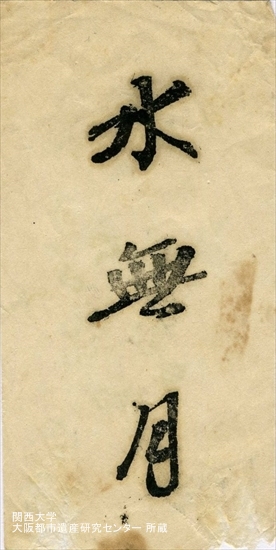 水無月
関西大学
大阪都市遺産研究センター 所蔵